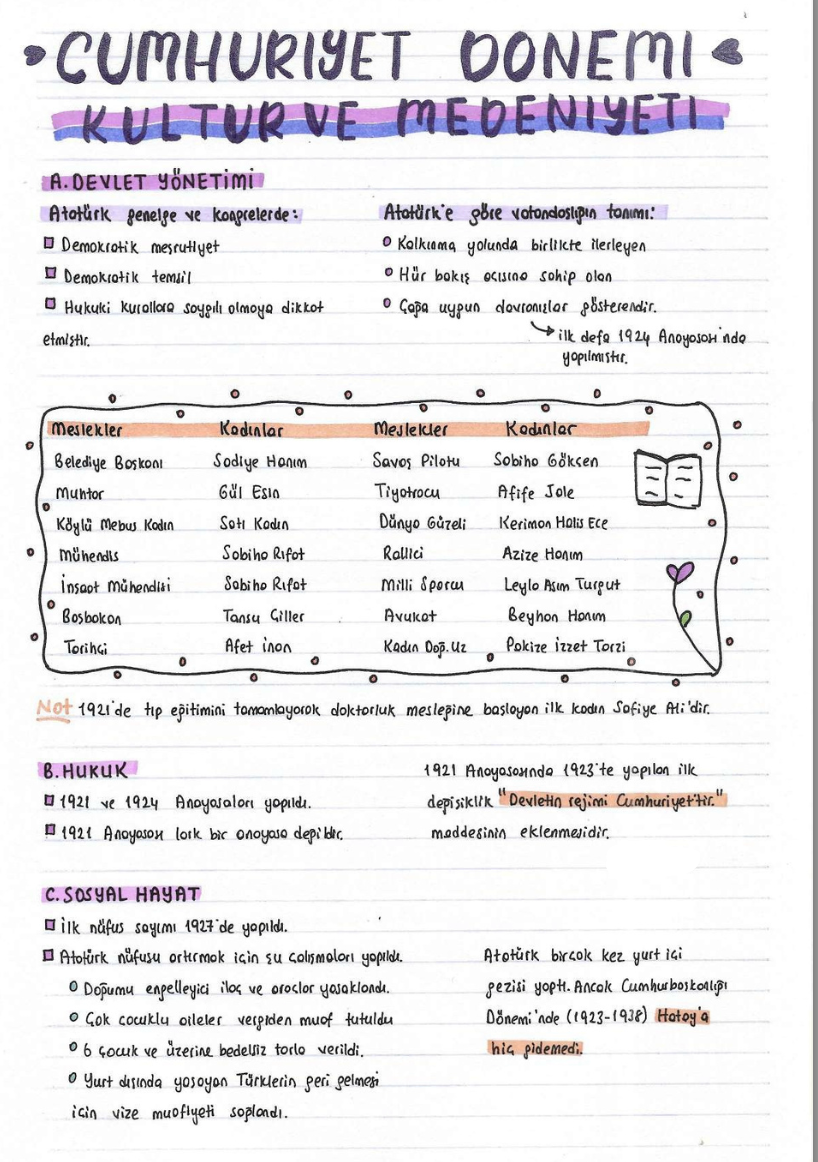 CUMHURIYET DONEMI
KULTUR VE MEDENIYETI
A. DEVLET YÖNETİMİ
Atatürk genelge ve kongrelerde:
▪ Demokratik meşrutiyet
▪ Demokratik temsil
▪ Hukuki kurallara saygılı olmaya dikkat
etmiştir.
Atatürk'e göre vatandaşlığın tanımı:
• Kalkınma yolunda birlikte ilerleyen
• Hür bakış açısına sahip olan
• Çağa uygun davranışlar gösterendir.
→ ilk defa 1924 Anayasası'nda
yapılmıştır.
Meslekler Kadınlar Meslekler Kadınlar
Belediye Başkanı Sadiye Hanım Savaş Pilotu Sabiha Gökçen
Muhtar Gül Esin Tiyatrocu Afife Jale
Köylü Mebus Kadın Satı Kadın Dünya Güzeli Keriman Halis Ece
Mühendis Sabiha Rıfat Rallici Azize Hanım
İnşaat Mühendisi Sabiha Rıfat Milli Sporcu Leyla Asım Turgut
Başbakan Tansu Çiller Avukat Beyhan Hanım
Tarihçi Afet İnan Kadın Doğ. Uz Pakize İzzet Tarzi
Not 1921'de tıp eğitimini tamamlayarak doktorluk mesleğine başlayan ilk kadın Safiye Ali'dir.
B. HUKUK
▪ 1921 ve 1924 Anayasaları yapıldı.
▪ 1921 Anayasası laik bir anayasa değildir.
1921 Anayasasında 1923'te yapılan ilk
değişiklik "Devletin rejimi Cumhuriyet'tir."
maddesinin eklenmesidir.
C. SOSYAL HAYAT
▪ İlk nüfus sayımı 1927'de yapıldı.
▪ Atatürk nüfusu artırmak için şu çalışmaları yapıldı.
• Doğumu engelleyici ilaç ve araçlar yasaklandı.
• Çok çocuklu aileler vergiden muaf tutuldu
• 6 çocuk ve üzerine bedelsiz tarla verildi.
• Yurt dışında yaşayan Türklerin geri gelmesi
için vize muafiyeti sağlandı.
Atatürk birçok kez yurt içi
gezisi yaptı. Ancak Cumhurbaşkanlığı
Dönemi'nde (1923-1938) Hatay'a
hiç gidemedi.